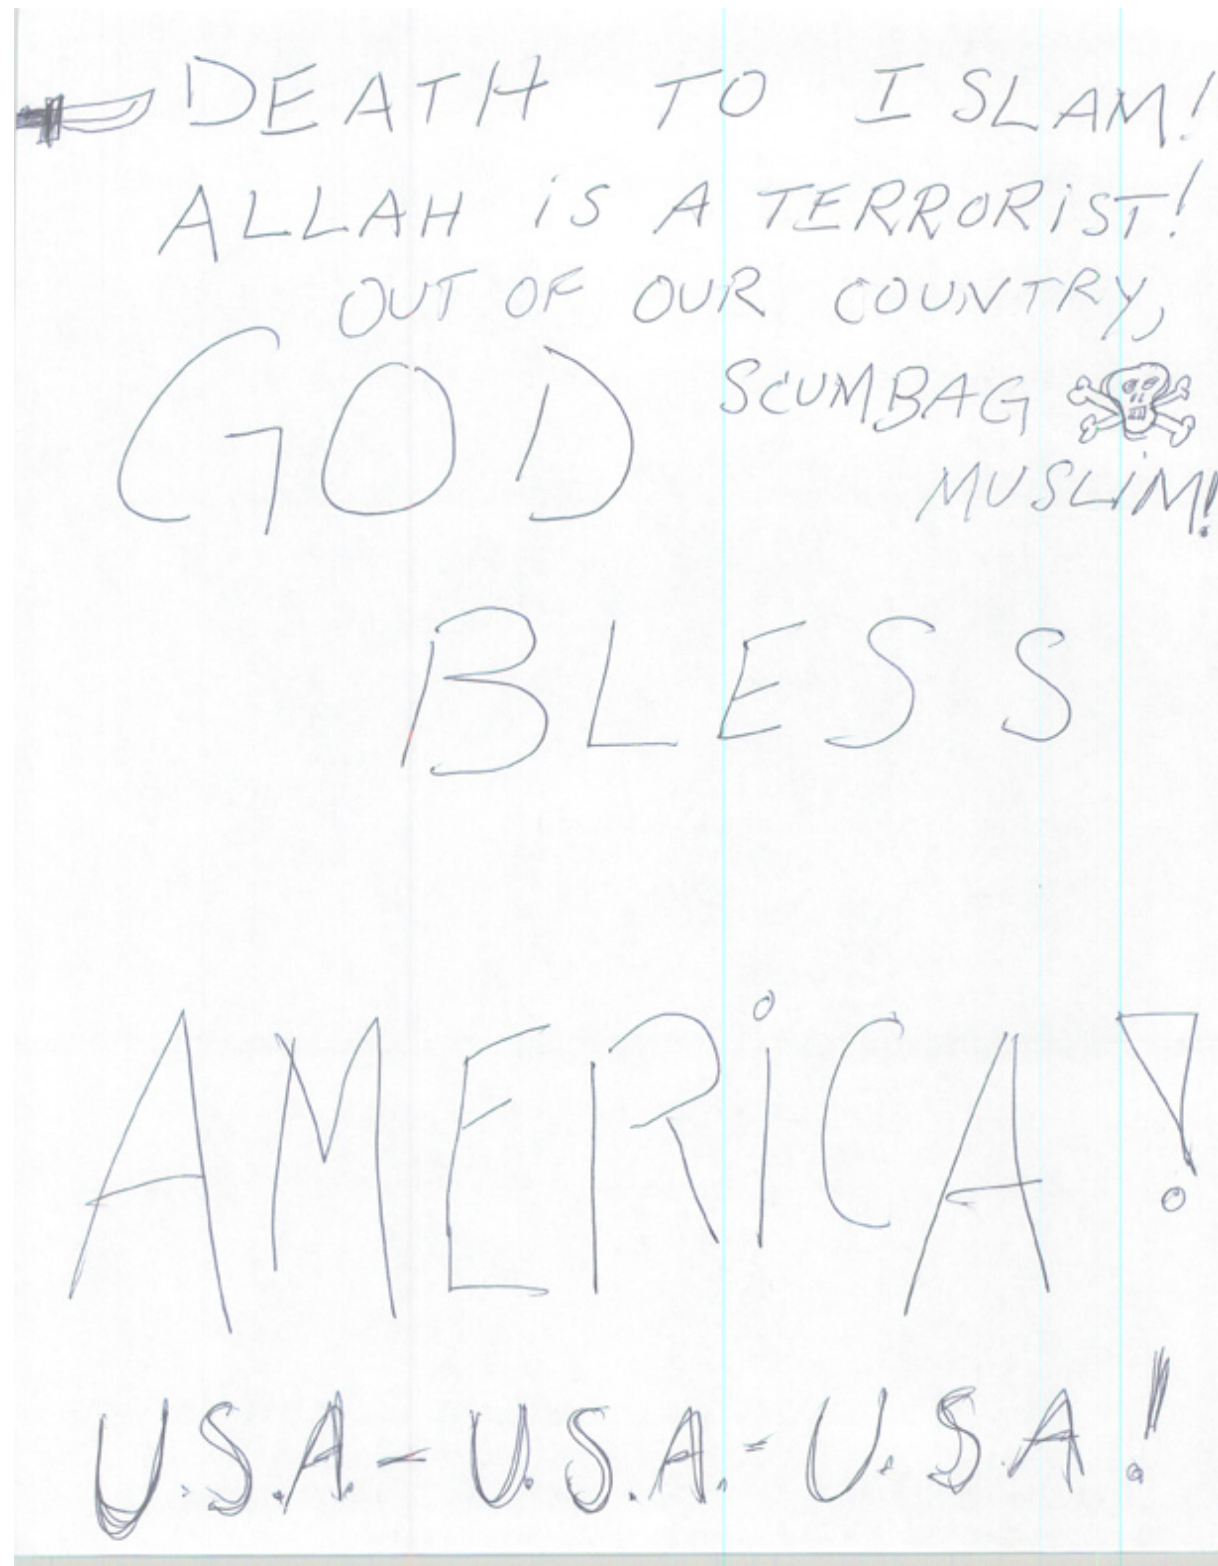 DEATH TO ISLAM!
ALLAH iS A TERRORiST!
OUT OF OUR COUNTRY,
SCUMBAG
MUSLiM!
GOD
BLESS
AMERiCA!
U.S.A. - U.S.A. - U.S.A!